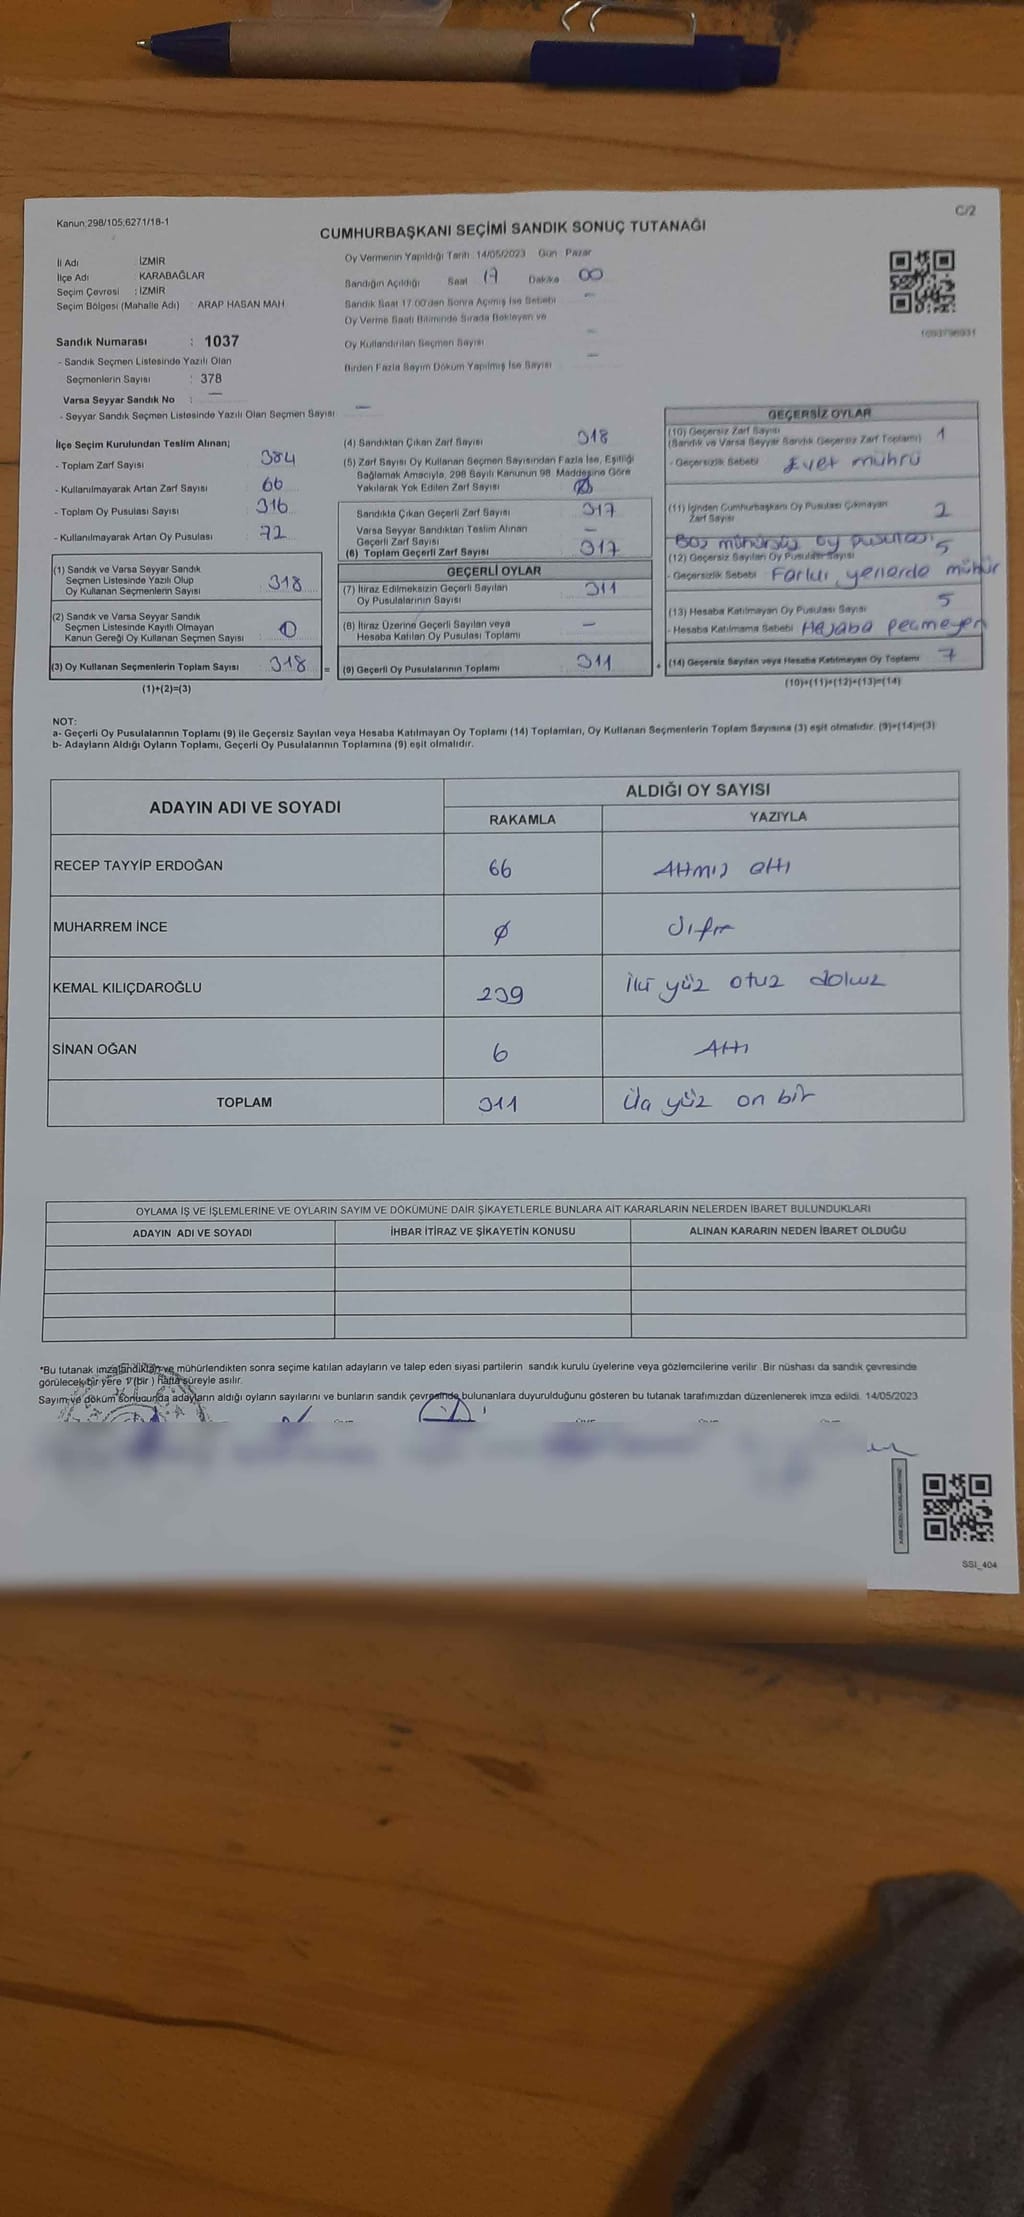 Kanun;298/105;6271/18-1
C/2
CUMHURBAŞKANI SEÇİMİ SANDIK SONUÇ TUTANAĞI
İl Adı : İZMİR
İlçe Adı : KARABAĞLAR
Seçim Çevresi : İZMİR
Seçim Bölgesi (Mahalle Adı) : ARAP HASAN MAH
Oy Vermenin Yapıldığı Tarih : 14/05/2023 Gün : Pazar
Sandığın Açıldığı Saat 17 Dakika 00
Sandık Saat 17:00'den Sonra Açılmış İse Sebebi —
Oy Verme Saati Bitiminde Sırada Bekleyen ve
Oy Kullandırılan Seçmen Sayısı —
Birden Fazla Sayım Döküm Yapılmış İse Sayısı —
Sandık Numarası : 1037
- Sandık Seçmen Listesinde Yazılı Olan
Seçmenlerin Sayısı : 378
Varsa Seyyar Sandık No : —
- Seyyar Sandık Seçmen Listesinde Yazılı Olan Seçmen Sayısı —
İlçe Seçim Kurulundan Teslim Alınan;
- Toplam Zarf Sayısı 384
- Kullanılmayarak Artan Zarf Sayısı 66
- Toplam Oy Pusulası Sayısı 316
- Kullanılmayarak Artan Oy Pusulası 72
(1) Sandık ve Varsa Seyyar Sandık
Seçmen Listesinde Yazılı Olup
Oy Kullanan Seçmenlerin Sayısı 318
(2) Sandık ve Varsa Seyyar Sandık
Seçmen Listesinde Kayıtlı Olmayan
Kanun Gereği Oy Kullanan Seçmen Sayısı 0
(3) Oy Kullanan Seçmenlerin Toplam Sayısı 318 =
(1)+(2)=(3)
(4) Sandıktan Çıkan Zarf Sayısı 318
(5) Zarf Sayısı Oy Kullanan Seçmen Sayısından Fazla İse, Eşitliği
Sağlamak Amacıyla, 298 Sayılı Kanunun 98. Maddesine Göre
Yakılarak Yok Edilen Zarf Sayısı
Sandıkta Çıkan Geçerli Zarf Sayısı 317
Varsa Seyyar Sandıktan Teslim Alınan
Geçerli Zarf Sayısı —
(6) Toplam Geçerli Zarf Sayısı 317
GEÇERLİ OYLAR
(7) İtiraz Edilmeksizin Geçerli Sayılan
Oy Pusulalarının Sayısı 311
(8) İtiraz Üzerine Geçerli Sayılan veya
Hesaba Katılan Oy Pusulası Toplamı —
(9) Geçerli Oy Pusulalarının Toplamı 311 +
GEÇERSİZ OYLAR
(10) Geçersiz Zarf Sayısı 1
(Sandık ve Varsa Seyyar Sandık Geçersiz Zarf Toplamı)
- Geçersizlik Sebebi Evet mührü
(11) İçinden Cumhurbaşkanı Oy Pusulası Çıkmayan
Zarf Sayısı 2
Boş mühürsüz oy pusulası
(12) Geçersiz Sayılan Oy Pusulası Sayısı 5
- Geçersizlik Sebebi Farklı yerlerde mühür
(13) Hesaba Katılmayan Oy Pusulası Sayısı 5
- Hesaba Katılmama Sebebi Hesaba geçmeyen
(14) Geçersiz Sayılan veya Hesaba Katılmayan Oy Toplamı 7
(10)+(11)+(12)+(13)=(14)
NOT:
a- Geçerli Oy Pusulalarının Toplamı (9) ile Geçersiz Sayılan veya Hesaba Katılmayan Oy Toplamı (14) Toplamları, Oy Kullanan Seçmenlerin Toplam Sayısına (3) eşit olmalıdır. (9)+(14)=(3)
b- Adayların Aldığı Oyların Toplamı, Geçerli Oy Pusulalarının Toplamına (9) eşit olmalıdır.
ADAYIN ADI VE SOYADI
ALDIĞI OY SAYISI
RAKAMLA YAZIYLA
RECEP TAYYİP ERDOĞAN 66 Altmış altı
MUHARREM İNCE 0 Sıfır
KEMAL KILIÇDAROĞLU 239 İki yüz otuz dokuz
SİNAN OĞAN 6 Altı
TOPLAM 311 Üç yüz on bir
OYLAMA İŞ VE İŞLEMLERİNE VE OYLARIN SAYIM VE DÖKÜMÜNE DAİR ŞİKAYETLERLE BUNLARA AİT KARARLARIN NELERDEN İBARET BULUNDUKLARI
ADAYIN ADI VE SOYADI İHBAR İTİRAZ VE ŞİKAYETİN KONUSU ALINAN KARARIN NEDEN İBARET OLDUĞU
*Bu tutanak imzalandıktan ve mühürlendikten sonra seçime katılan adayların ve talep eden siyasi partilerin sandık kurulu üyelerine veya gözlemcilerine verilir. Bir nüshası da sandık çevresinde
görülecek bir yere 1 (bir ) hafta süreyle asılır.
Sayım ve döküm sonucunda adayların aldığı oyların sayılarını ve bunların sandık çevresinde bulunanlara duyurulduğunu gösteren bu tutanak tarafımızdan düzenlenerek imza edildi. 14/05/2023
SSI_404